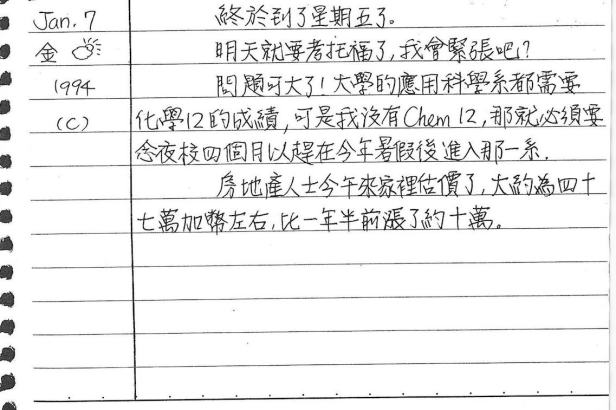 Jan. 7 終於到了星期五了。
金 明天就要考托福了,我會緊張吧?
1994 問題可大了!大學的應用科學系都需要
(C) 化學12的成績,可是我沒有Chem 12,那就必須要
念夜校四個月以趕在今年暑假後進入那一系.
房地產人士今午來家裡估價了,大約為四十
七萬加幣左右,比一年半前漲了約十萬。